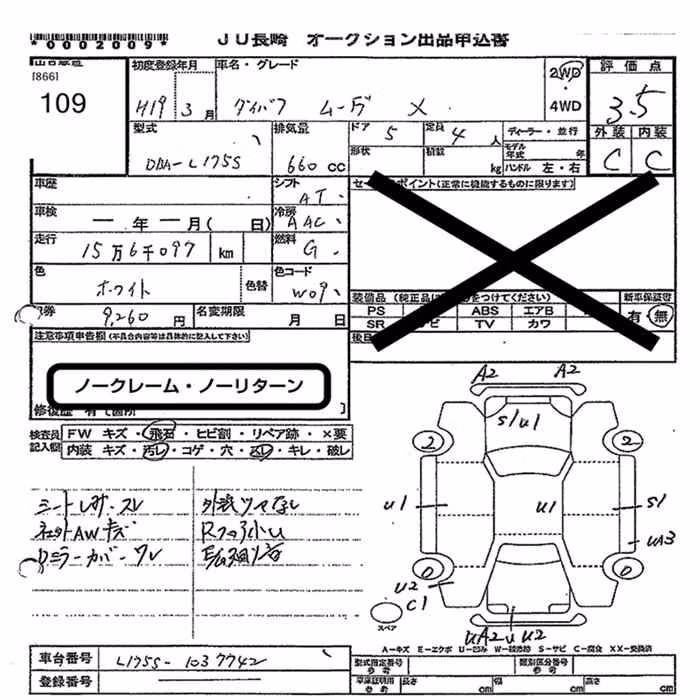 *0002009*
JU長崎 オークション出品申込書
[866]
109
初度登録年月
H19 3月
車名・グレード
ダイハツ ムーヴ X
2WD
4WD
評価点
3.5
外装 内装
C C
型式
DBA-L175S
排気量
660cc
ドア 5
定員 4人
ディーラー・並行
形状
積載 kg
モデル年式 年
ハンドル 左・右
車歴
シフト AT
車検 ー年ー月( 日)
冷房 AAC
走行 15万6千097 km
燃料 G
色 ホワイト
色替
色コード W09
券 9,260円
名変期限 月 日
セー ポイント(正常に機能するものに限ります)
装備品(純正品に をつけてください)
新車保証書
有・無
PS ABS エアB
SR ビ TV カワ
後日
注意事項申告欄(不具合内容等は具体的に記入して下さい)
ノークレーム・ノーリターン
修復歴 有[箇所 ]
検査員記入欄
FW キズ・飛石・ヒビ割・リペア跡・×要
内装 キズ・汚レ・コゲ・穴・スレ・キレ・破レ
シートしみ・スレ
外装ツヤなし
AWキズ
ミラーカバーワレ
A2 A2
S1U1
2 2
U1 U1 S1
UA3
0 0
U2
C1
スペア
UA2 U U2
A-キズ E-エクボ U-凹み W-補修跡 S-サビ C-腐食 XX-交換済
車台番号 L175S-1037742
登録番号
型式指定番号 参考
類別区分番号 参考
車庫証明用 参考
長さ cm
幅 cm
高さ cm